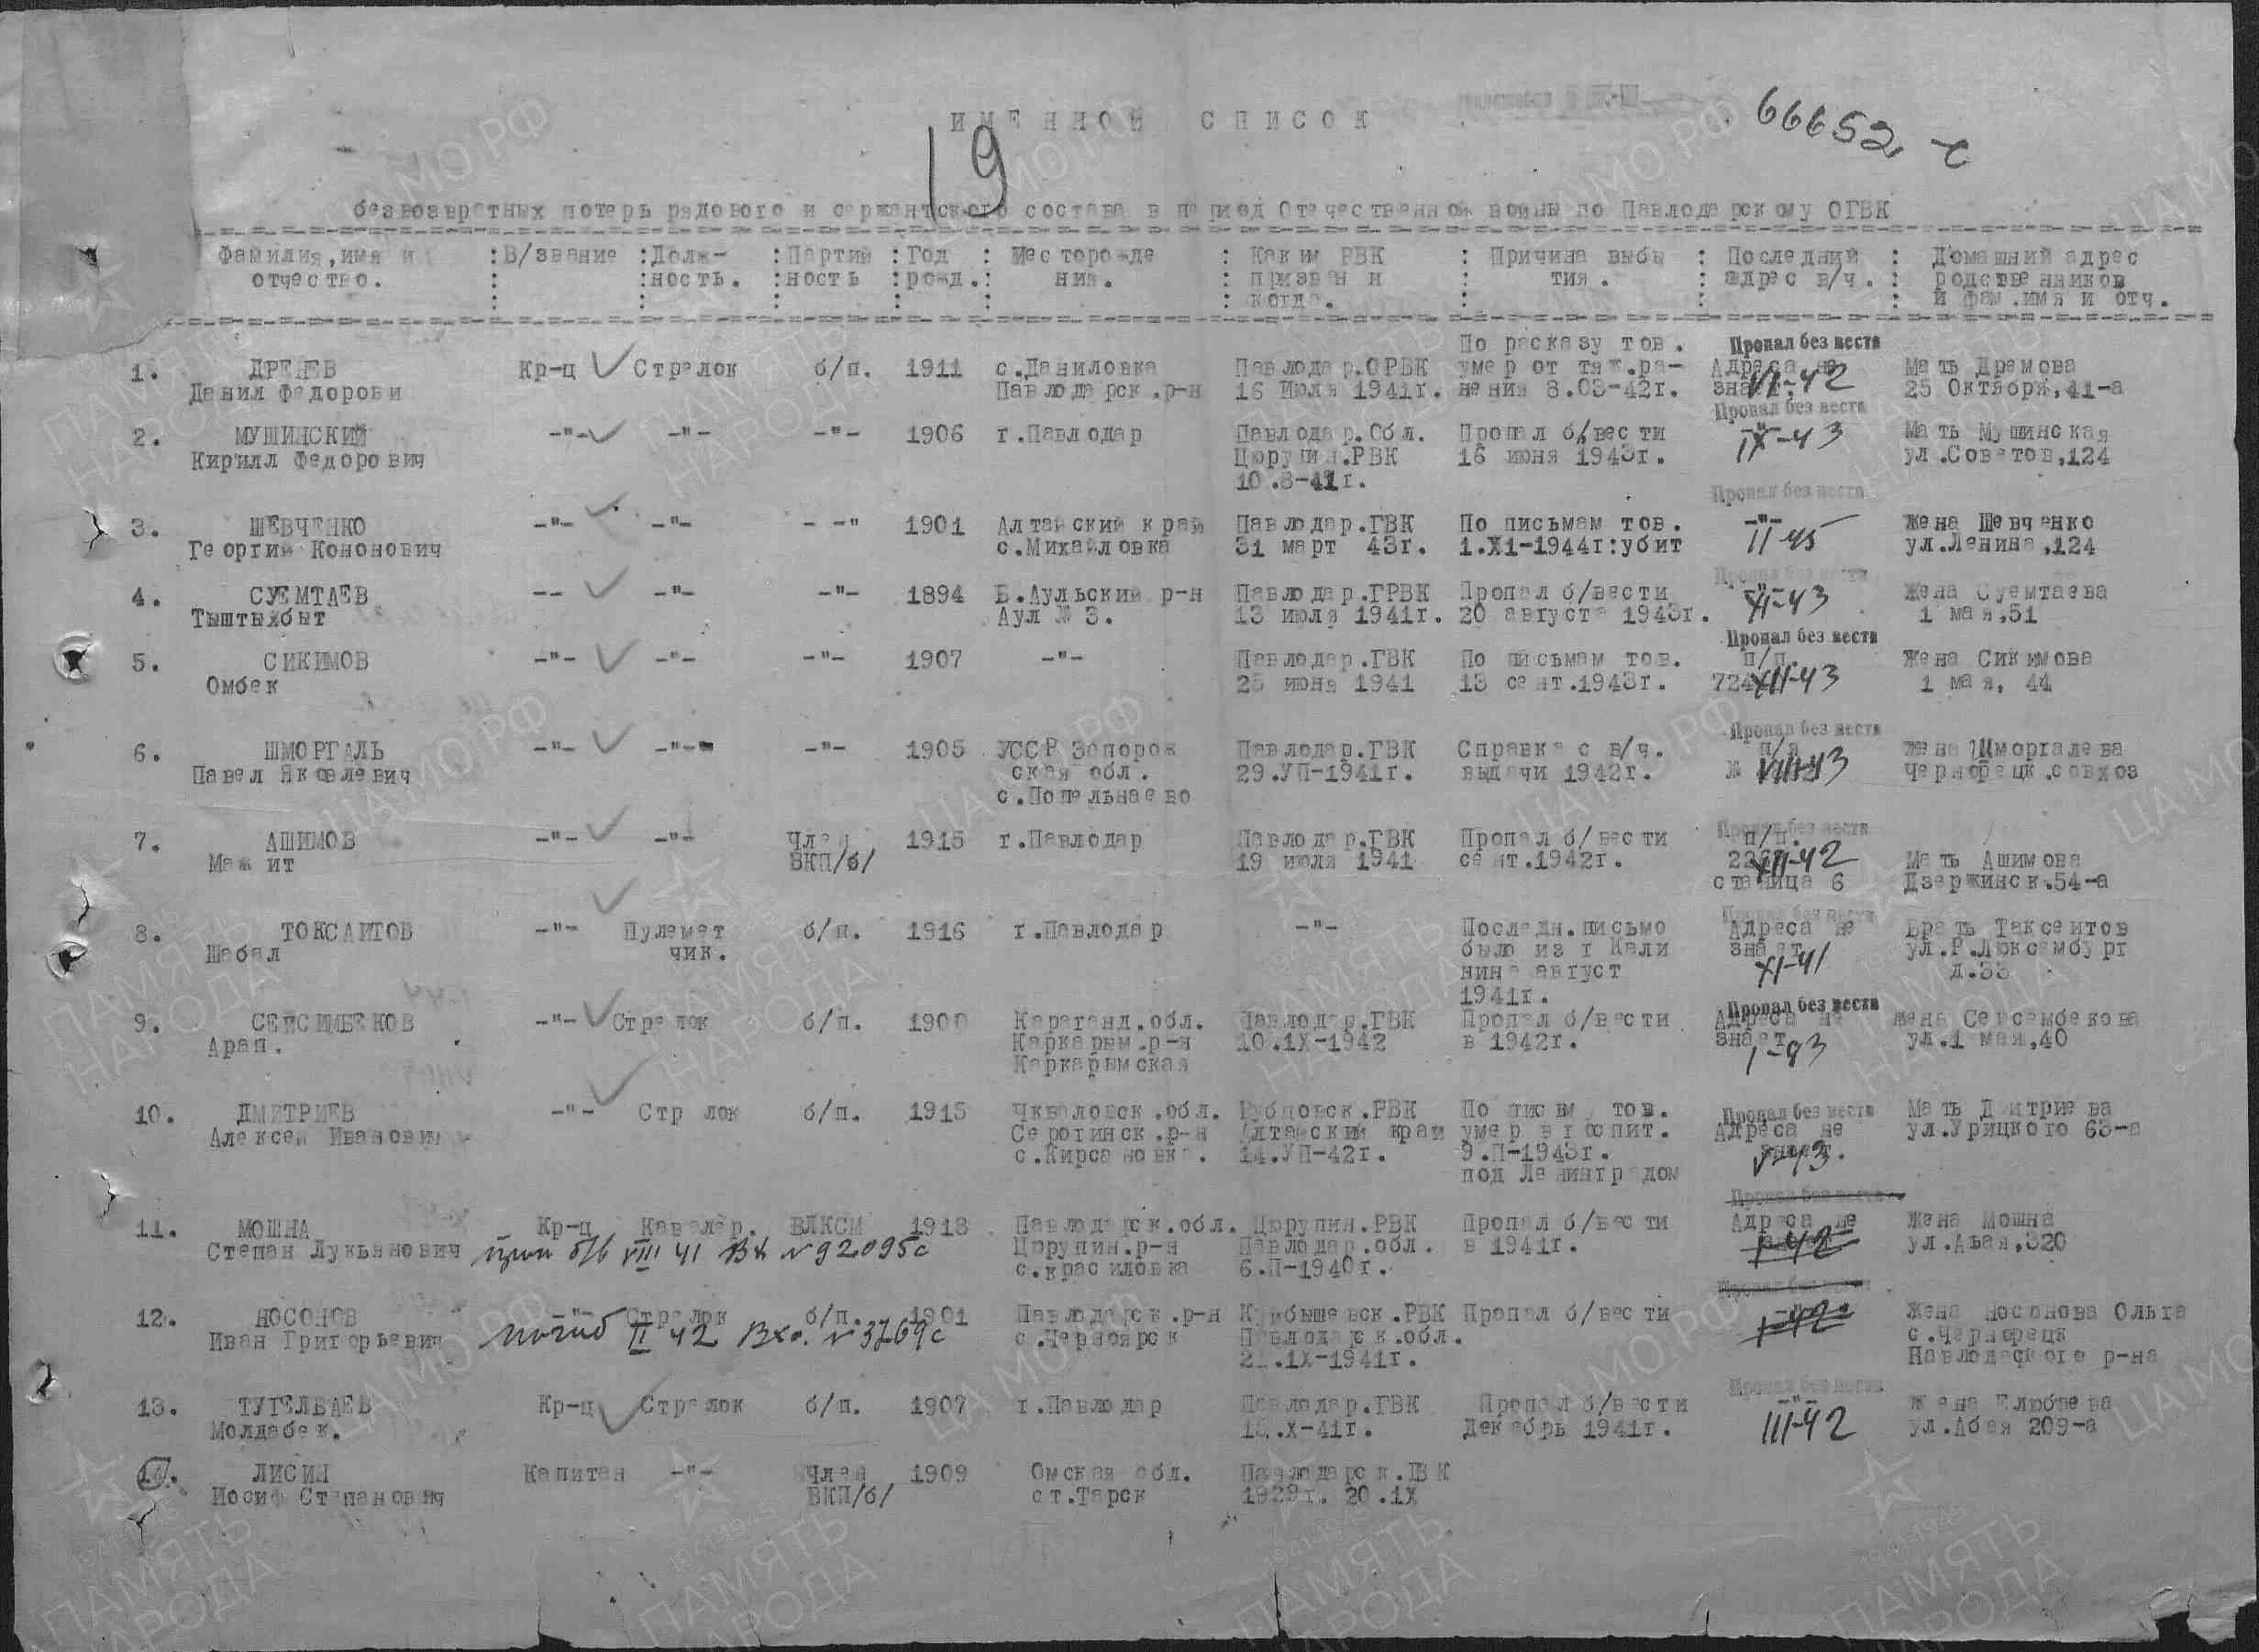 ИМЕННОЙ СПИСОК
66652 с
19
безвозвратных потерь рядового и сержантского состава в период Отечественной войны по Павлодарскому ОГВК
Фамилия,имя и :В/звание :Долж- :Партий :Год : Месторожде : Каким РВК : Причина выбы : Последний : Домашний адрес
отчество. : :ность. :ность :рожд.: ния. : призван и : тия. : адрес в/ч. : родственников
: : : : : : когда. : : : и фам.имя и отч.
По расказу тов. Пропал без вести
1. ДРЕМЕВ Кр-ц Стрелок б/п. 1911 с.Даниловка Павлодар.ОРВК умер от тяж.ра- Адреса не Мать Дремова
Данил Федорови Павлодарск.р-н 16 Июля 1941г. нения 8.03-42г. знает. VI-42 25 Октября,41-а
Пропал без вести
2. МУШИНСКИЙ -"- -"- -"- 1906 г.Павлодар Павлодар.Обл. Пропал б/вести -"- IX-43 Мать Мушинская
Кирилл Федорович Цюрупин.РВК 16 июня 1943г. ул.Советов,124
10.8-41г.
Пропал без вести
3. ШЕВЧЕНКО -"- -"- - -" 1901 Алтайский край Павлодар.ГВК По письмам тов. -"- Жена Шевченко
Георгий Кононович с.Михайловка 31 март 43г. 1.Х1-1944г:убит II-45 ул.Ленина,124
Пропал без вести
4. СУЕМТАЕВ -- -"- -"- 1894 Б.Аульский р-н Павлодар.ГРВК Пропал б/вести -"- XI-43 Жена Суемтаева
Тыштыхбыт Аул № 3. 13 июля 1941г. 20 августа 1943г. 1 мая,51
Пропал без вести
5. СИКИМОВ -"- -"- -"- 1907 -"- Павлодар.ГВК По письмам тов. п/п. Жена Сикимова
Омбек 25 июня 1941 13 сент.1943г. 724 XII-43 1 мая, 44
Пропал без вести
6. ШМОРГАЛЬ -"- -"- -"- 1905 УССР Запорож Павлодар.ГВК Справка с в/ч. п/я Жена Шморгалева
Павел Яковлевич ская обл. 29.УП-1941г. выдачи 1942г. № VIII-43 Чернорецк.совхоз
с.Попельнаево
Пропал без вести
7. АШИМОВ -"- -"- Член 1915 г.Павлодар Павлодар.ГВК Пропал б/вести п/п.
Мажит ВКП/б/ 19 июля 1941 сент.1942г. XII-42 Мать Ашимова
станица 6 Дзержинск.54-а
Пропал без вести
8. ТОКСАИТОВ -"- Пулемет б/п. 1916 г.Павлодар -"- Последн.письмо Адреса не Брать Таксеитов
Шабал чик. было из г Кали знает. ул.Р.Люксембург
нина август XI-41 д.33
1941г. Пропал без вести
9. СЕИСИМБЕКОВ -"- Стрелок б/п. 1900 Караганд.обл. Павлодар.ГВК Пропал б/вести Адреса не Жена Сейсембекова
Арап. Каркарым.р-н 10.1Х-1942 в 1942г. знает I-43 ул.1 мая,40
Каркарымская
10. ДМИТРИЕВ -"- Стр лок б/п. 1915 Чкваловск.обл. Рубцовск.РВК По письм. тов. Пропал без вести Мать Дмитриева
Алексей Иванович Серогинск.р-н Алтайский край умер в госпит. Адреса не ул.Урицкого 63-а
с.Кирсановка. 14.УП-42г. 9.П-1943г. знает. V-43
под Ленинградом
Пропал без вести
11. МОШНА Кр-ц Кавалер. ВЛКСМ 1918 Павлодарск.обл. Цюрупин.РВК Пропал б/вести Адреса не Жена Мошна
Степан Лукьянович проп б/в VIII 41 Вх №92095с Цюрупин.р-н Павлодар.обл. в 1941г. I-42 ул.Абая,320
с.красиловка 6.П-1940г.
Пропал без вести
12. НОСОНОВ -"- Стрелок б/п. 1901 Павлодарск.р-н Куйбышевск.РВК Пропал б/вести I-42 Жена Носонова Ольга
Иван Григорьевич погиб II 42 Вхо. №3769с с.Черноярск Павлодарск.обл. с.Чернорецк
2 .1Х-1941г. Павлодаского р-на
Пропал без вести
13. ТУГЕЛБАЕВ Кр-ц Стрелок б/п. 1907 г.Павлодар Павлодар.ГВК Пропал б/вести -"- Жена Елюбаева
Молдабек. 1 .Х-41г. Декабрь 1941г. III-42 ул.Абая 209-а
14. ЛИСИН Капитан -"- Член 1909 Омская обл. Павлодарск.ВК
Иосиф Степанович ВКП/б/ ст.Тарск 1929г. 20.1Х